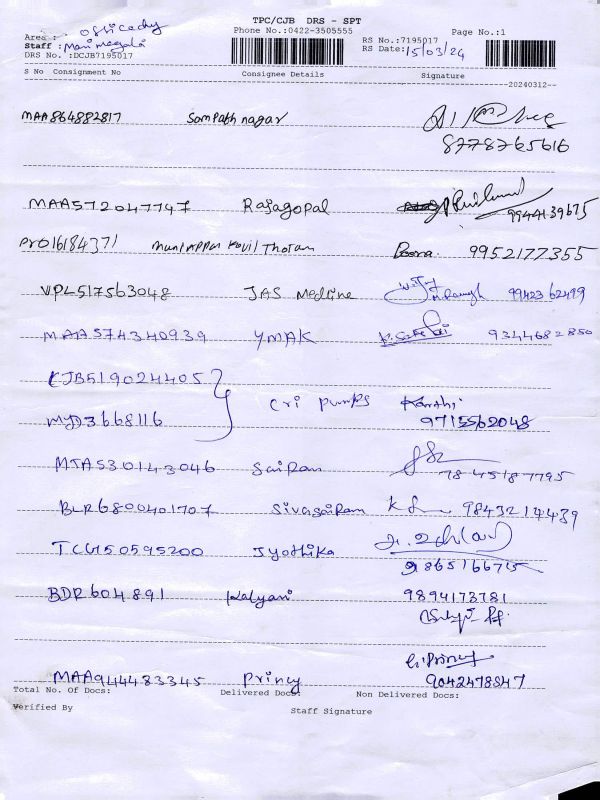 TPC/CJB DRS - SPT
Area : Phone No.:0422-3505555 Page No.:1
Staff : Manimegalai RS No.:7195017
DRS No. :DCJB7195017 RS Date:15/03/24
S No Consignment No Consignee Details Signature
--20240312--
MAA864882817 Sampath nagar
8778765616
MAA572047747 Rajagopal 9944139675
PY01618437 Muniappan Kovil Thotam 9952177355
VPL517563048 JAS Medline 9942362499
MAA574340939 YMAK 9344682850
KJB519024405
CRI Pumps Karthi
MYD3668116 9715562048
MJA530143046 Sairam 7845187795
BLR6800401707 Sivasairam 9843214439
TCG150595200 Jyothika
9865166715
BDR604891 Kalyani 9894173781
G. Princy
MAA944483345 Princy 9042478847
Total No. Of Docs: Delivered Docs: Non Delivered Docs:
Verified By Staff Signature